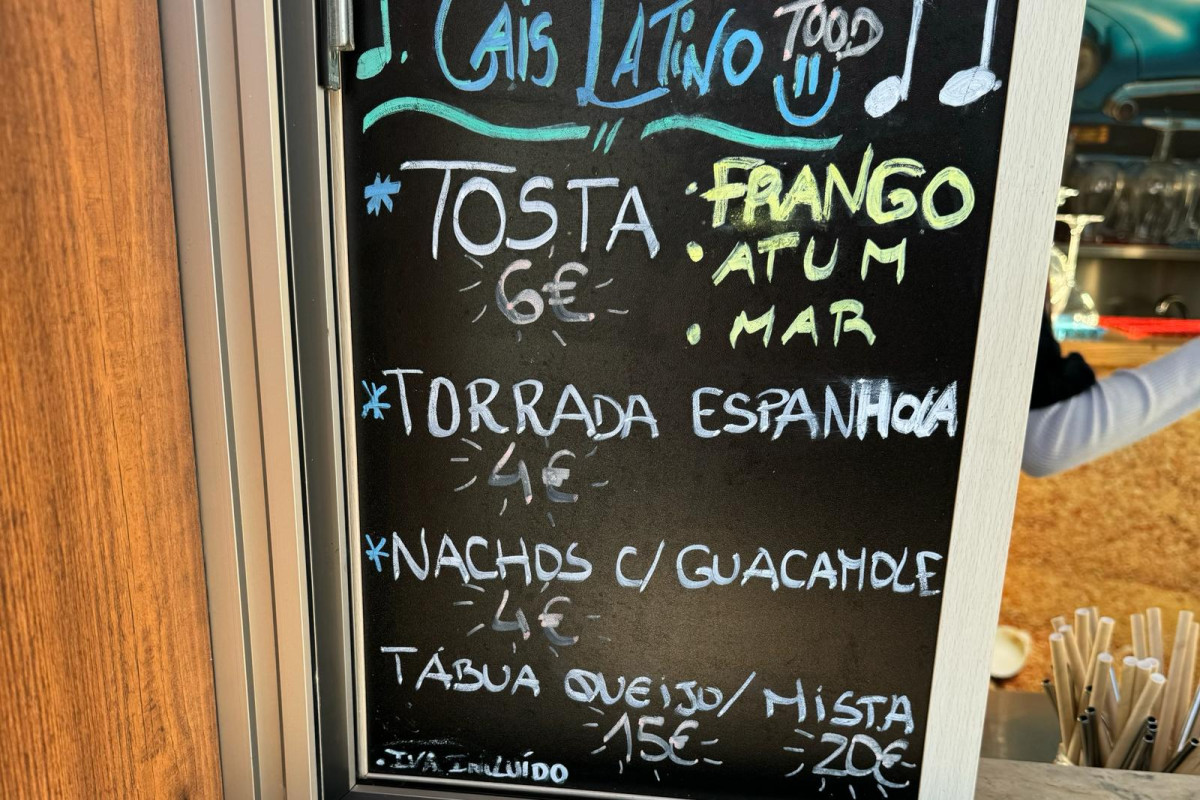 Cais Latino TOOD
* TOSTA
6€
• FRANGO
• ATUM
• MAR
* TORRADA ESPANHOLA
4€
* NACHOS C/ GUACAMOLE
4€
TÁBUA QUEIJO/ MISTA
15€ 20€
• IVA INCLUÍDO